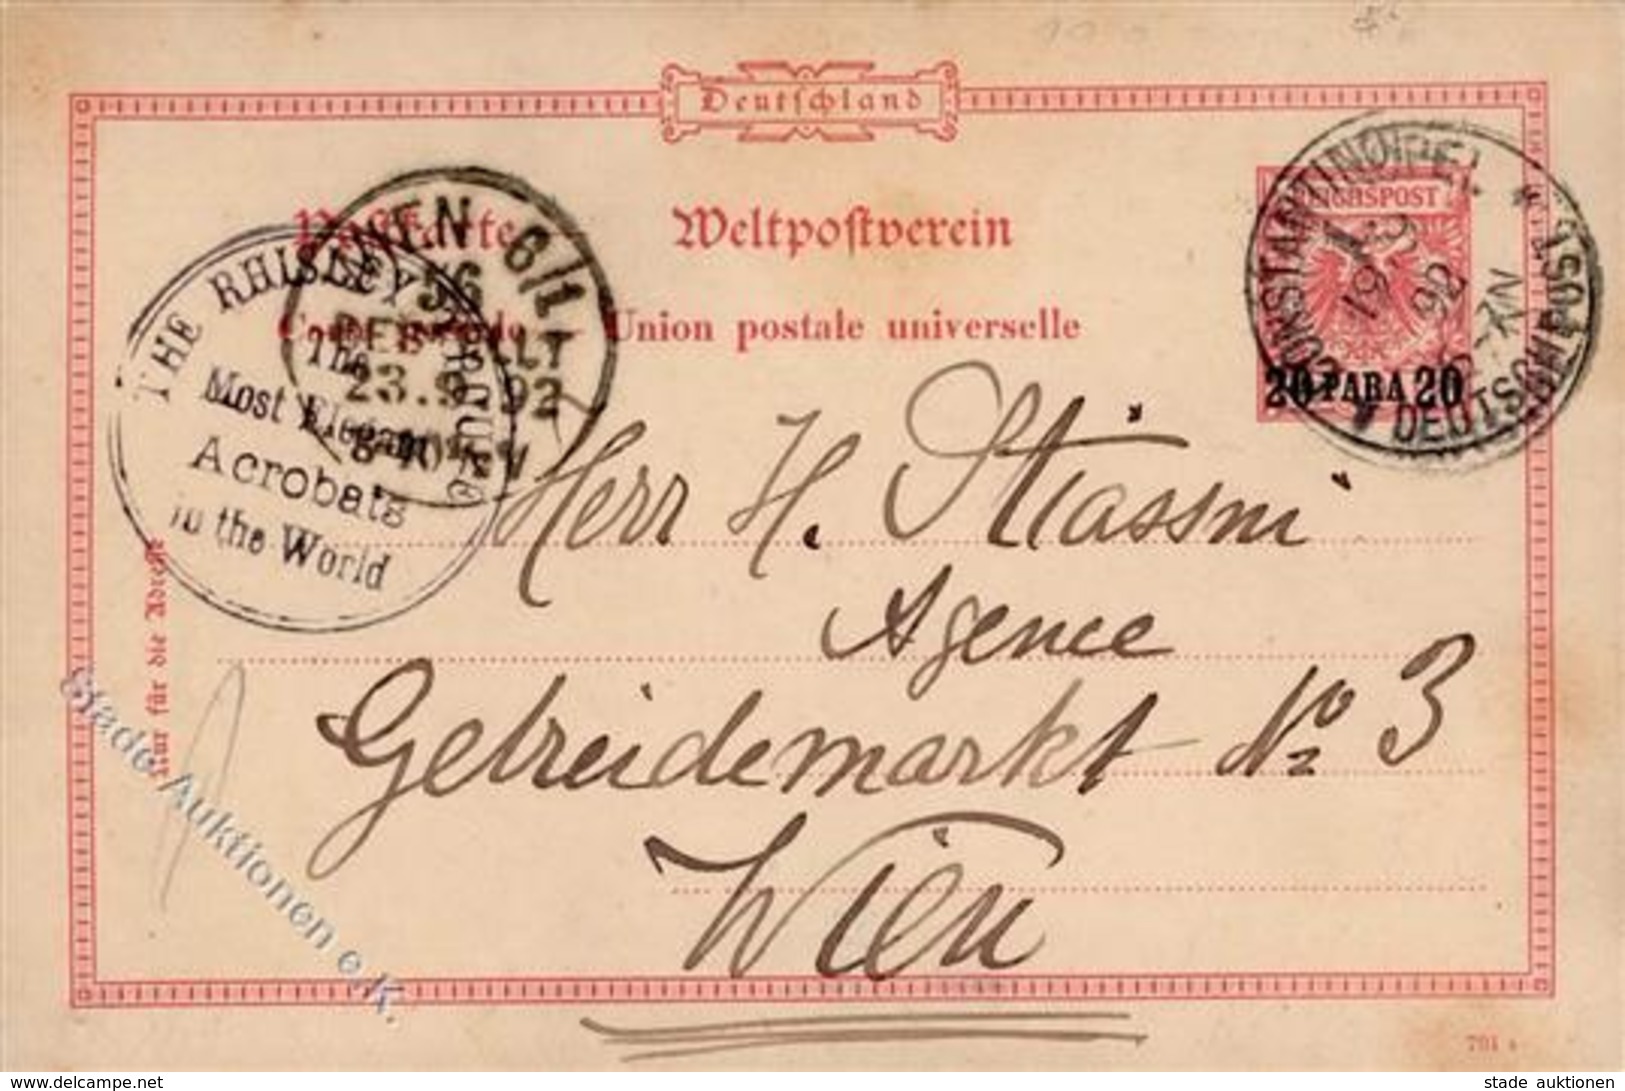 Deutschland
Postkarte Weltpostverein
Carte postale Union postale universelle
REICHSPOST
20 PARA 20
CONSTANTINOPEL 1 * DEUTSCHE POST *
19 92
6-7N
WIEN 6/1
56
BESTELLT
23.9.92
THE RHISLEY TROUPE
The
Most Elegant
Acrobats
in the World
Herr H. Stiassni
Agence
Getreidemarkt No 3
Wien
Nur für die Adresse
Stade Auktionen e.K.
701
www.delcampe.net
stade auktionen